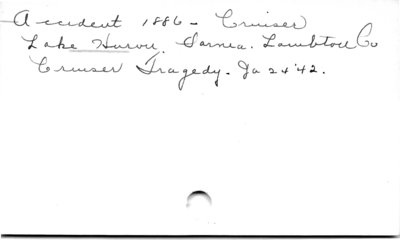 Accident 1886 - Cruiser
Lake Huron, Sarnia. Lambton Co
Cruiser Tragedy. Ja 24 '42.